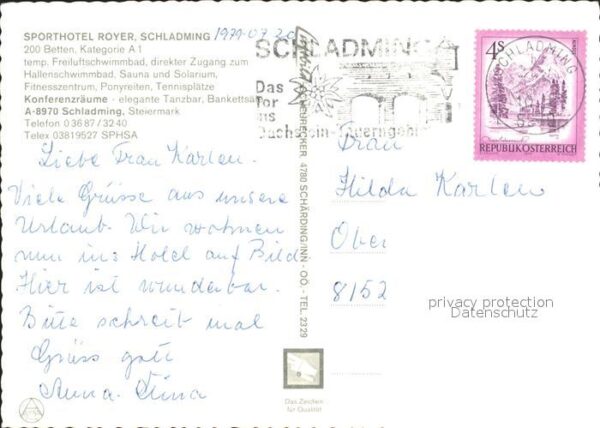 SPORTHOTEL ROYER, SCHLADMING
1979-07-20
200 Betten, Kategorie A 1
temp. Freiluftschwimmbad, direkter Zugang zum
Hallenschwimmbad, Sauna und Solarium,
Fitnesszentrum, Ponyreiten, Tennisplätze
Konferenzräume - elegante Tanzbar, Bankettsaal
A-8970 Schladming, Steiermark
Telefon 0 36 87 / 32 40
Telex 03819527 SPHSA
Liebe Frau Karlen.
Viele Grüsse aus unsere
Urlaub. Wir wohnen
nun ins Hotel auf Bild
Hier ist wunderbar.
Bitte schreib mal
Grüss gott
Anna-
SCHLADMING
Das
Tor
ins
Dachstein-Tauerngebiet
4780 SCHÄRDING/INN - OÖ. - TEL. 2329
Das Zeichen
für Qualität
SCHLADMING
4S
REPUBLIK ÖSTERREICH
Frau
Hilda Karlen
Ober
8152
privacy protection
Datenschutz